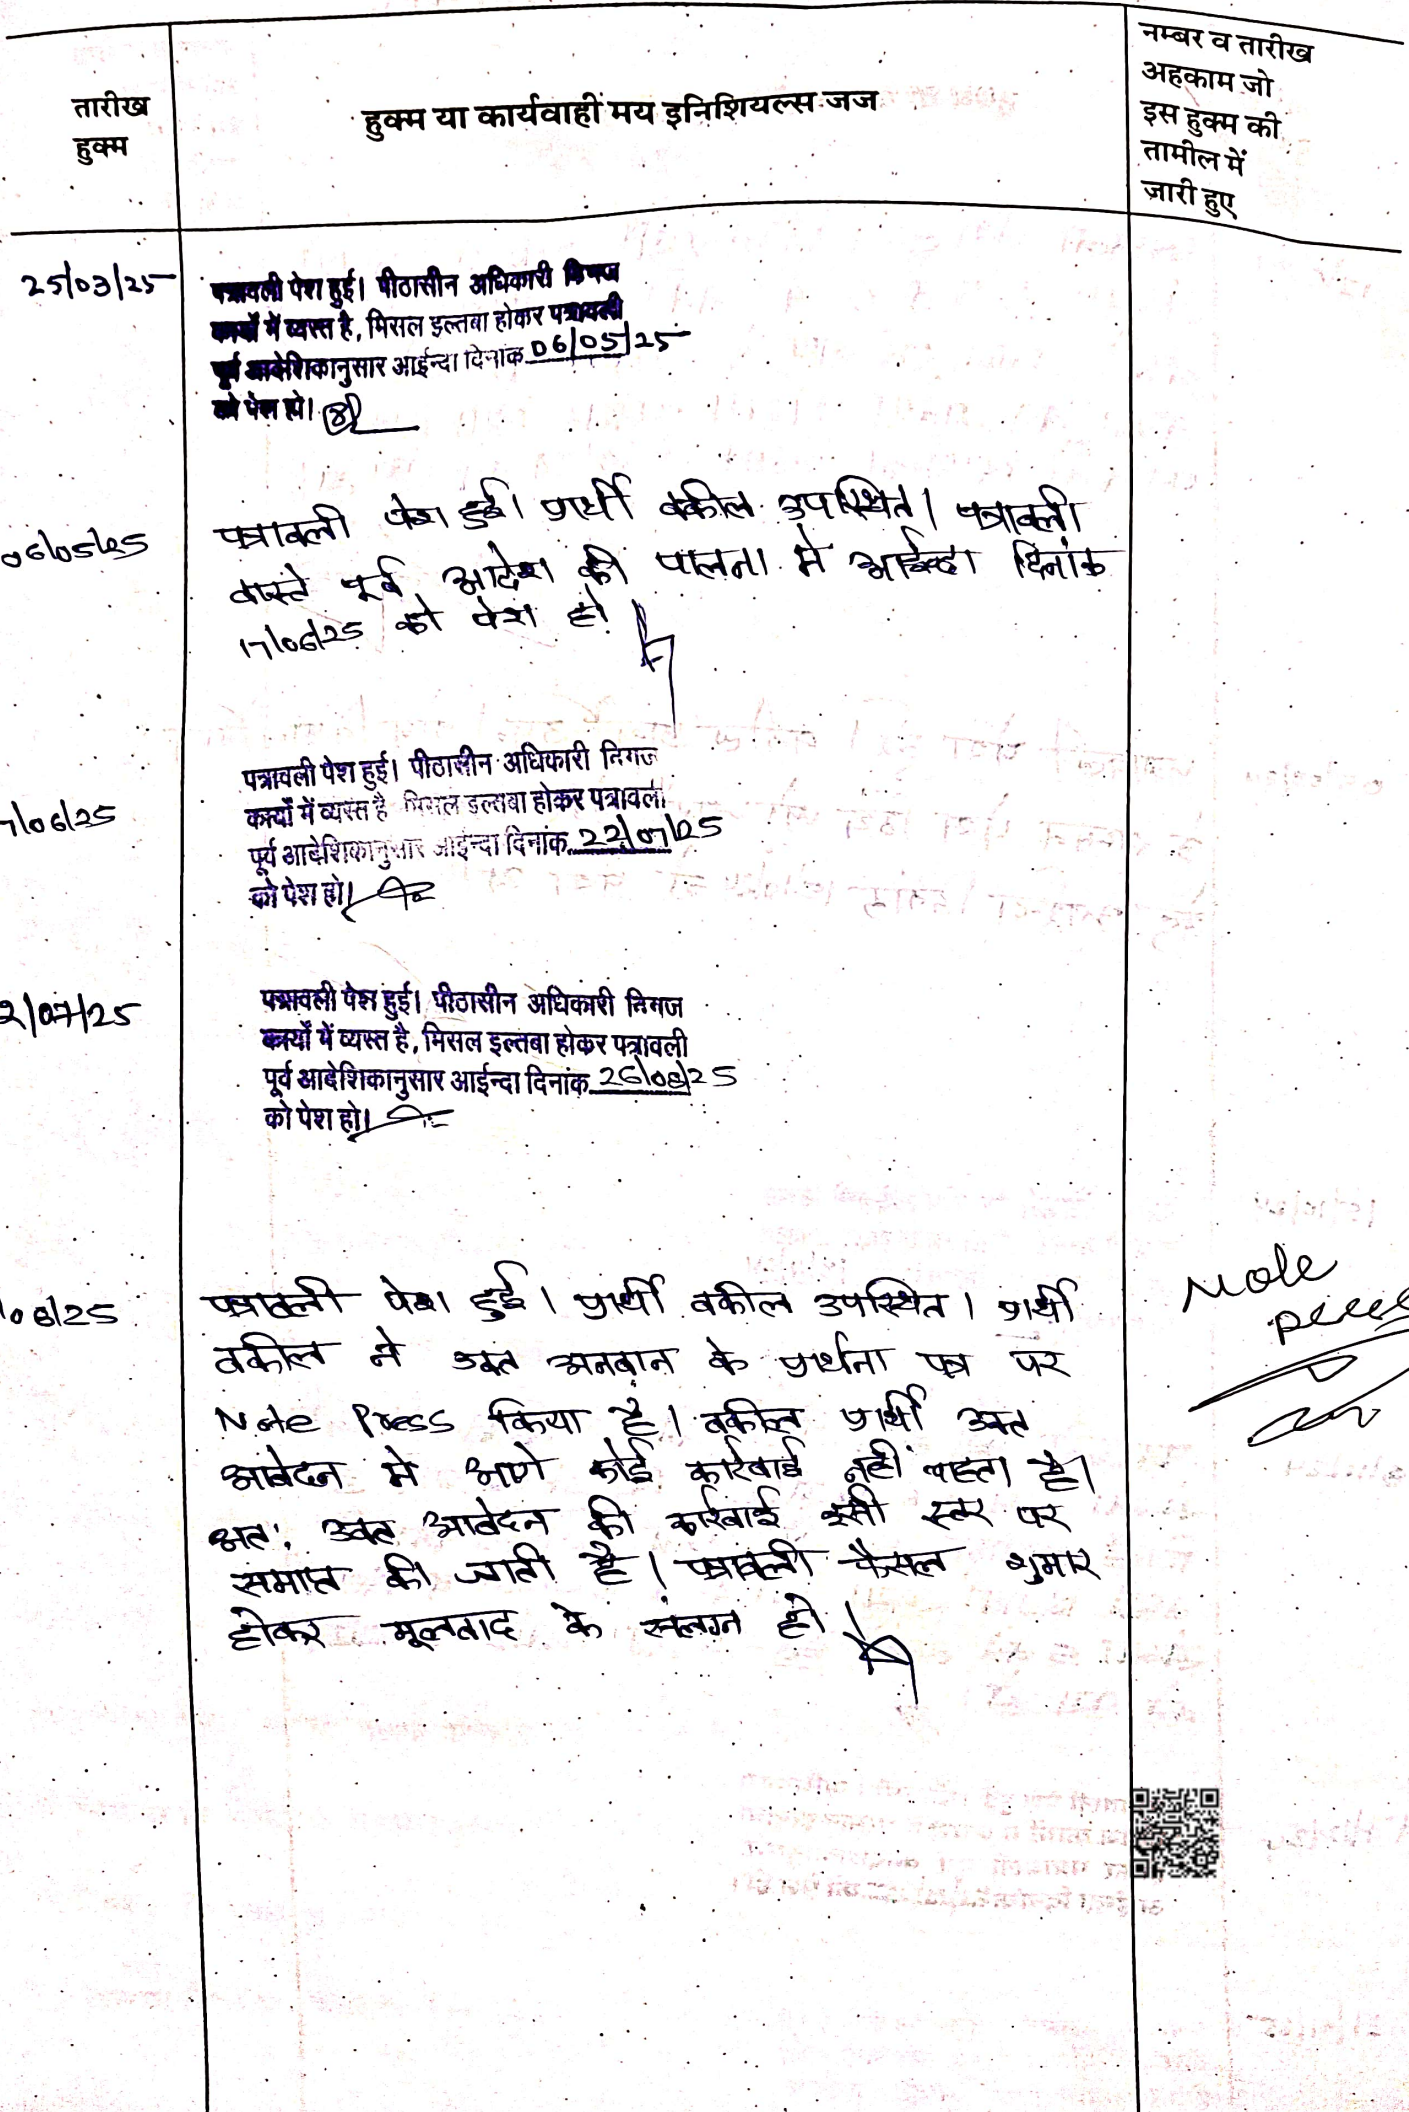 तारीख
हुक्म
हुक्म या कार्यवाही मय इनिशियल्स जज
नम्बर व तारीख
अहकाम जो
इस हुक्म की
तामील में
जारी हुए
25/03/25
पत्रावली पेश हुई। पीठासीन अधिकारी
कार्यों में व्यस्त है, मिसल इल्तबा होकर पत्रावली
पूर्व आदेशिकानुसार आईन्दा दिनांक 06/05/25
को पेश हो।
06/05/25
पत्रावली पेश हुई। प्रार्थी वकील उपस्थित। पत्रावली
वास्ते पूर्व आदेश की पालना मे आईन्दा दिनांक
17/06/25 को पेश हो
/06/25
पत्रावली पेश हुई। पीठासीन अधिकारी
कार्यों में व्यस्त है मिसल इल्तबा होकर पत्रावली
पूर्व आदेशिकानुसार आईन्दा दिनांक 22/07/25
को पेश हो।
2/07/25
पत्रावली पेश हुई। पीठासीन अधिकारी निमज
कार्यों में व्यस्त है, मिसल इल्तबा होकर पत्रावली
पूर्व आदेशिकानुसार आईन्दा दिनांक 26/08/25
को पेश हो।
/08/25
पत्रावली पेश हुई। प्रार्थी वकील उपस्थित। प्रार्थी
वकील ने उक्त अनवान के प्रार्थना पत्र पर
Note Press किया है। वकील प्रार्थी उक्त
आवेदन मे आगे कोई कार्रवाई नहीं चाहता है।
अत: उक्त आवेदन की कार्रवाई इसी स्तर पर
समाप्त की जाती है। पत्रावली फैसल शुमार
होकर मूलवाद के संलग्न हो।
Note
press